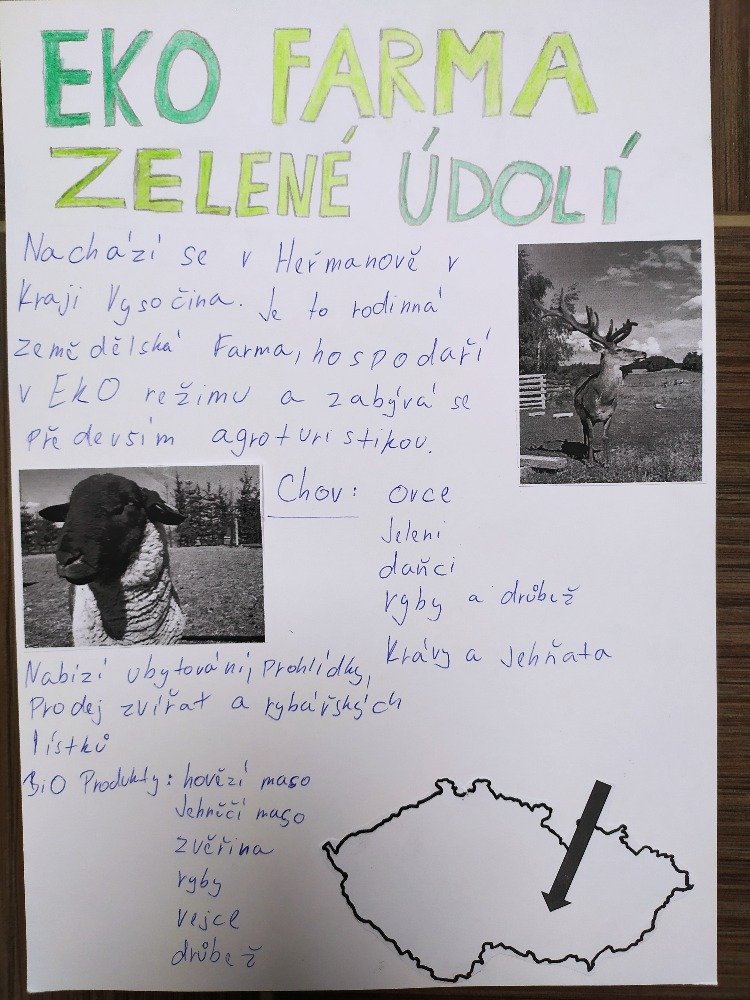 EKO FARMA
ZELENÉ ÚDOLÍ
Nachází se v Heřmanově v
Kraji Vysočina. Je to rodinná
zemědělská farma, hospodaří
v EKO režimu a zabývá se
především agroturistikou.
Chov: ovce
Jeleni
daňci
ryby a drůbež
krávy a jehňata
Nabízí ubytování, prohlídky,
Prodej zvířat a rybářských
lístků
BiO Produkty: hovězí maso
Jehněčí maso
zvěřina
ryby
vejce
drůbež